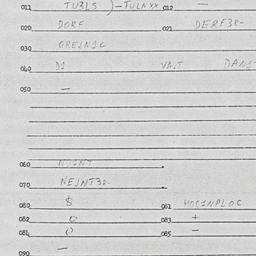 011 TU2LS )-TULNXX 012 —
020 DORF 021 DERF3R-
030 GREINIC
040 D1 VA.T DAN
050 —
060
070 NEINT3D-
080 $ 081 HORINPLOC
082 0 083 +
084 0 085 —
090 —